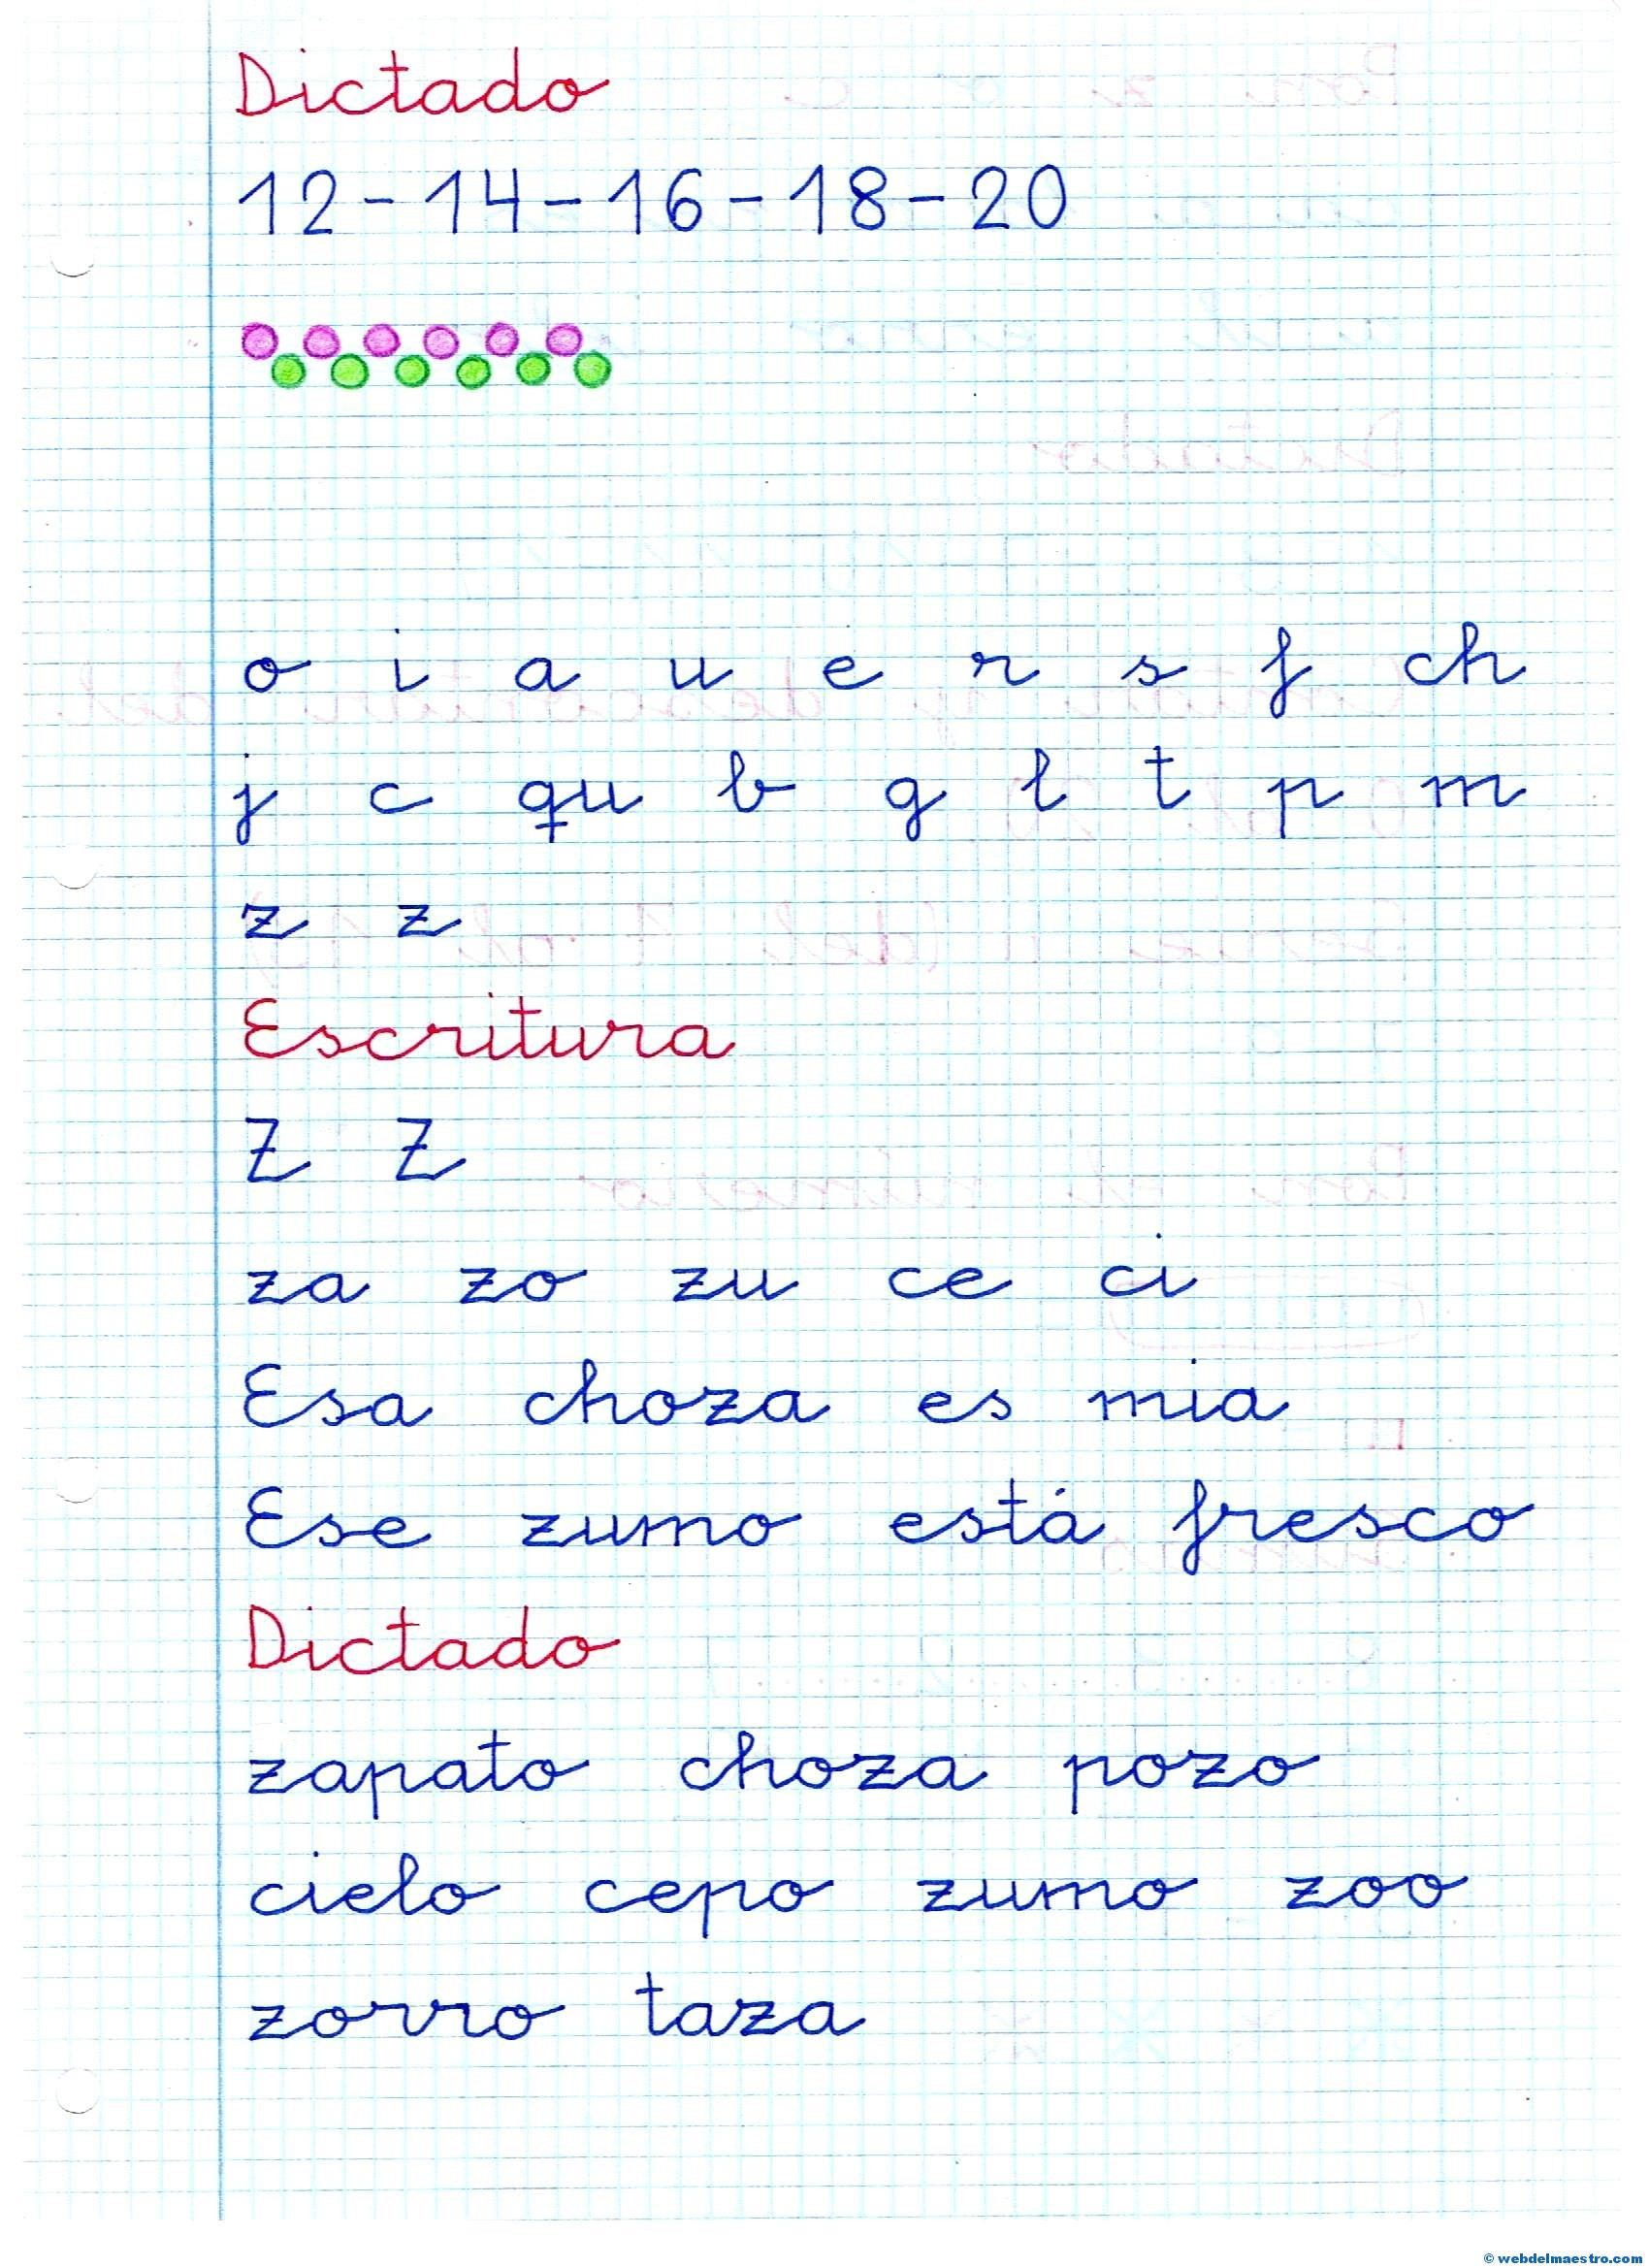 Dictado
12-14-16-18-20
o i a u e r s f ch
j c qu b g l t p m
z z
Escritura
Z Z
za zo zu ce ci
Esa choza es mia
Ese zumo está fresco
Dictado
zapato choza pozo
cielo cepo zumo zoo
zorro taza
© webdelmaestro.com